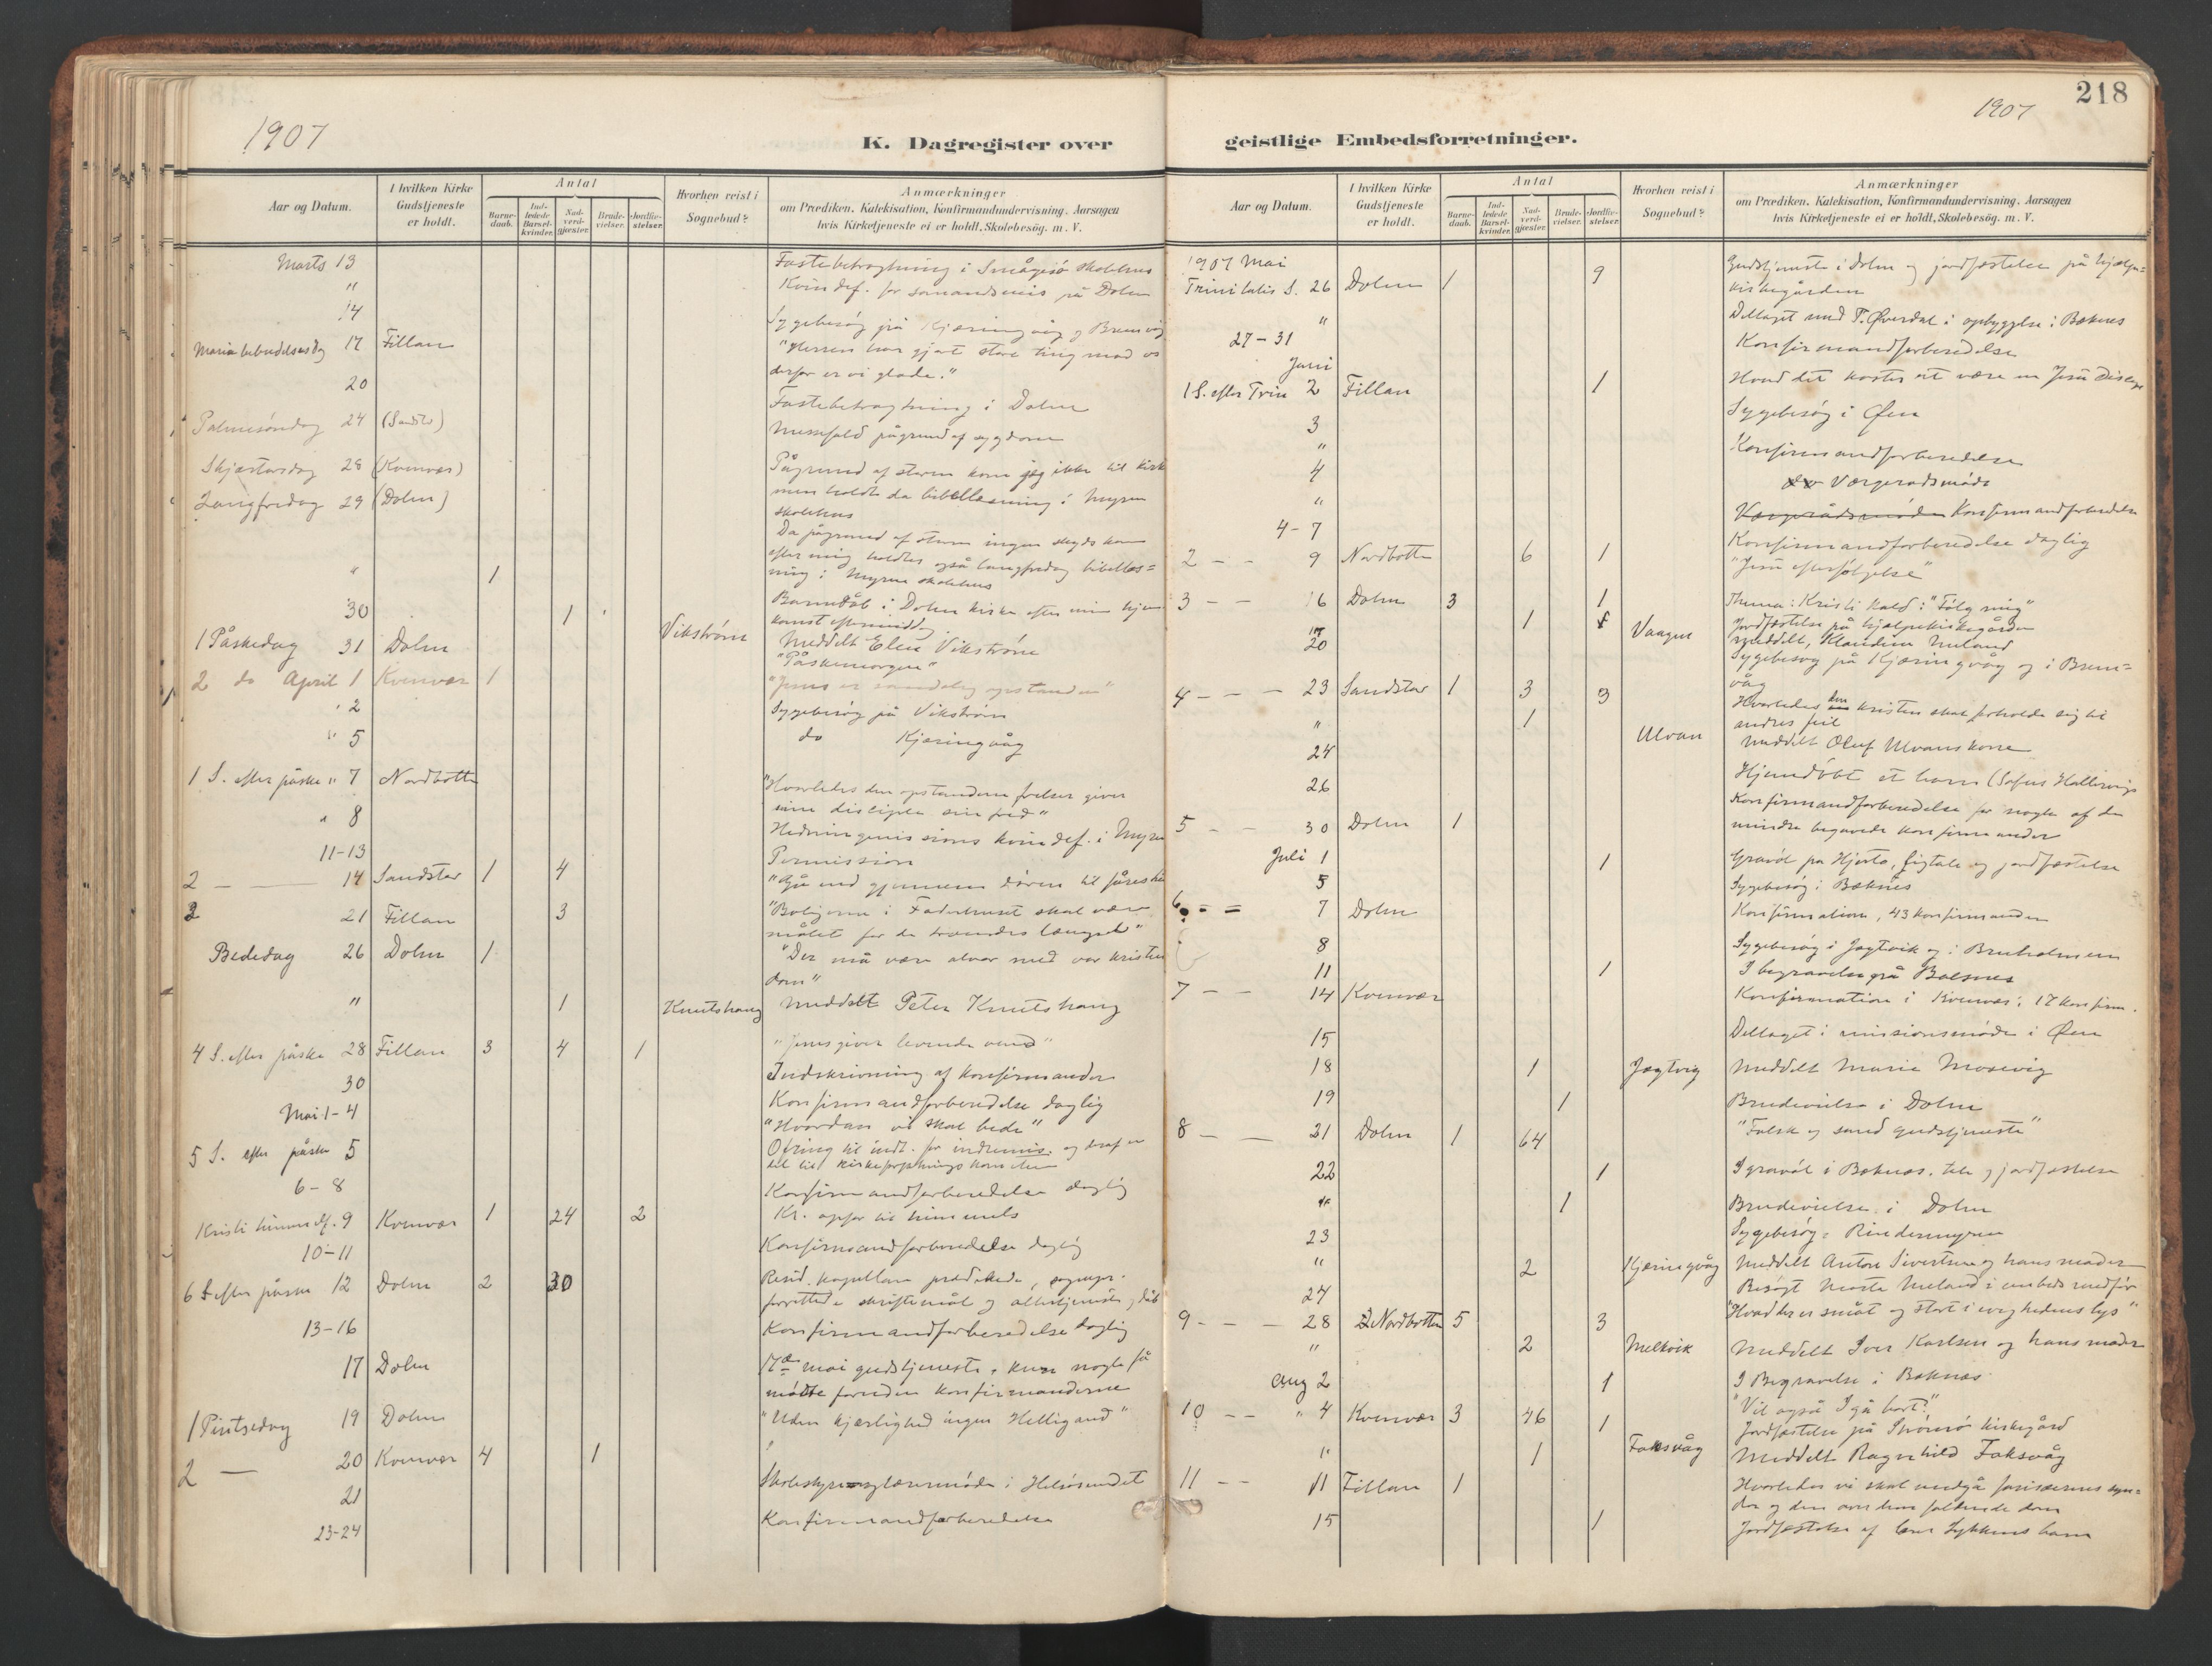 1907
K. Dagregister over
Aar og Datum.
I hvilken Kirke Gudstjeneste er holdt.
Antal
Barne-daab.
Ind-ledede Barsel-kvinder.
Nad-verd-gjæster.
Brude-vielser.
Jordfæ-stelser.
Hvorhen reist i Sognebud?
Anmærkninger
om Prædiken, Katekisation, Konfirmandundervisning, Aarsagen
hvis Kirketjeneste ei er holdt, Skolebesög. m. V.
Marts 13 Fastebetragtning i Småge skolehus
" Kvindef. for på Dolm
14 Sygebesøg på Kjæringvåg og Bremvåg
Maria bebudelsesdag 17 Fillan "Herren har gjort store ting mod os
derfor er vi glade."
20 Fastebetragtning i Dolm
Palmesøndag 24 (Sandst) Messefald på grund af sygdom
Skjærtorsdag 28 (Kvenvær) Pågrund af storm kom jeg ikke til kirk
men holdt da bibellæsning i Myren
skolehus
Langfredag 29 (Dolm) Da pågrund af storm ingen skyds kom
efter mig holdtes også langfredag bibellæs=
ning i Myren skolehus
" 1 Barnedåb i Dolm kirke efter min hjem
komst eftermidd.
30 1 Vikstrøm Meddelt Elen Vikstrøm
1 Påskedag 31 Dolm "Påskemorgen"
2 do April 1 Kvenvær 1 "Jesus er sandelig opstanden"
" 2 Sygebesøg på Vikstrøm
" 5 do Kjæringvåg
1 S. efter påske " 7 Nordbotn "Hvorledes den opstandne frelser giver
sine disciple sin fred"
" 8 Hedningemissions kvindef. i Myren
11-13 Permission
2 — — 14 Sandstar 1 4 "Gå ind gjennem døren til fårestien
3 21 Fillan 3 "Boligerne i Faderhuset skal være
målet for de længsel"
Bededag 26 Dolm 1 "Der må være alvor med vor kristen
dom"
" 1 Knutshaug Meddelt Peter Knutshaug
4 S. efter påske 28 Fillan 3 4 1 "Jesus giver levende vand"
30 Indskrivning af konfirmander
Mai 1-4 Konfirmandforberedelse daglig
5 S. efter påske 5 "Hvordan vi skal bede"
Ofring til indt. for indremis. og
6-8 Konfirmandforberedelse daglig
Kristi himmelf. 9 Kvenvær 1 24 2 Kr. opfor til himmels
10-11 Konfirmandforberedelse daglig
6 S efter påske 12 Dolm 2 30 Resid. kapellan prædikede, sognepr.
forrettede skriftemål og altertjeneste, dåb
13-16 Konfirmandforberedelse daglig
17 Dolm 17de mai gudstjeneste, kun nogle få
mødte foruden konfirmanderne
1 Pintsedag 19 Dolm "Uden kjærlighed ingen Helligånd"
2 — 20 Kvenvær 4 1
21 Skolestyre- og lærermøde i Helsøsundet
23-24 Konfirmandforberedelse
1907
218
geistlige Embedsforretninger.
Aar og Datum.
I hvilken Kirke Gudstjeneste er holdt.
Antal
Barne-daab.
Ind-ledede Barsel-kvinder.
Nad-verd-gjæster.
Brude-vielser.
Jordfæ-stelser.
Hvorhen reist i Sognebud?
Anmærkninger
om Prædiken, Katekisation, Konfirmandundervisning, Aarsagen
hvis Kirketjeneste ei er holdt, Skolebesög. m. V.
1907 Mai
Trinitatis S. 26 Dolm 1 9 Gudstjeneste i Dolm og jordfæstelse på hjælpe=
kirkegården
" Deltaget med T. Øverdal i opbyggelse i Bæknes
27-31 Konfirmandforberedelse
Juni
1 S. efter Trin 2 Fillan 1 Hvad det koster at være en Jesu Discipel
3 Sygebesøg i Øen
" Konfirmandforberedelse
4 Værgerådsmøde
" Værgerådsmøde Konfirmandforberedelse
4-7 Konfirmandforberedelse daglig
2 - - 9 Nordbotn 6 1 "Jesu efterfølgelse"
3 - - 16 Dolm 3 1 Thema: Kristi kald: "Følg mig"
Jordfæstelse på hjælpekirkegården
17 1 Vaagen Meddelt, Klaudine Meland
20 Sygebesøg på Kjæringvåg og i Brem=
våg
4 - - - 23 Sandstar 1 3 3 Hvorledes den kristen skal forholde sig til
andres feil
" 1 Ulvan Meddelt Oluf Ulvans kone
24 Hjemdøbt et barn (Sofus Hallervigs
26 Konfirmandforberedelse for nogle af de
mindre begavede konfirmander
5 - - 30 Dolm 1
Juli 1 1 Gravøl på Hjertø, ligtale og jordfæstelse
5 Sygebesøg i Bæknes
6 - = 7 Dolm Konfirmation, 43 konfirmander
8 Sygebesøg i Jøgtvik og i Bruholmen
11 1 I begravelse på Bæknes
7 - - 14 Kvenvær Konfirmation i Kvenvær, 17 konfirm.
15 Deltaget i missionsmøde i Øen
18 1 Jøgtvig Meddelt Marie Mosevig
19 1 Brudevielse i Dolm
8 - - 21 Dolm 1 64 "Falsk og sand gudstjeneste"
22 1 I gravøl i Bæknes. tale og jordfæstelse
" 1 Brudevielse i Dolm
23 Sygebesøg: Rindermyren
" 2 Kjæringvåg Meddelt Anton Sivertsen og hans moder
24 Besøgt Marte Meland i embeds medfør
9 - - - 28 Nordbotn 5 3 "Hvad der er småt og stort i evighedens lys"
" 2 Melkvik Meddelt Iver Karlsen og hans moder
Aug 2 1 I Begravelse i Bæknes
10 - - " 4 Kvenvær 3 46 1 "Vil også I gå bort?"
Jordfæstelse på kirkegård
" 1 Faksvåg Meddelt Ragnhild Faksvåg
11 - - 11 Fillan 1 Hvorledes vi skal undgå farisæernes syn=
der og den over dem faldende dom
15 1 Jordfæstelse af barn